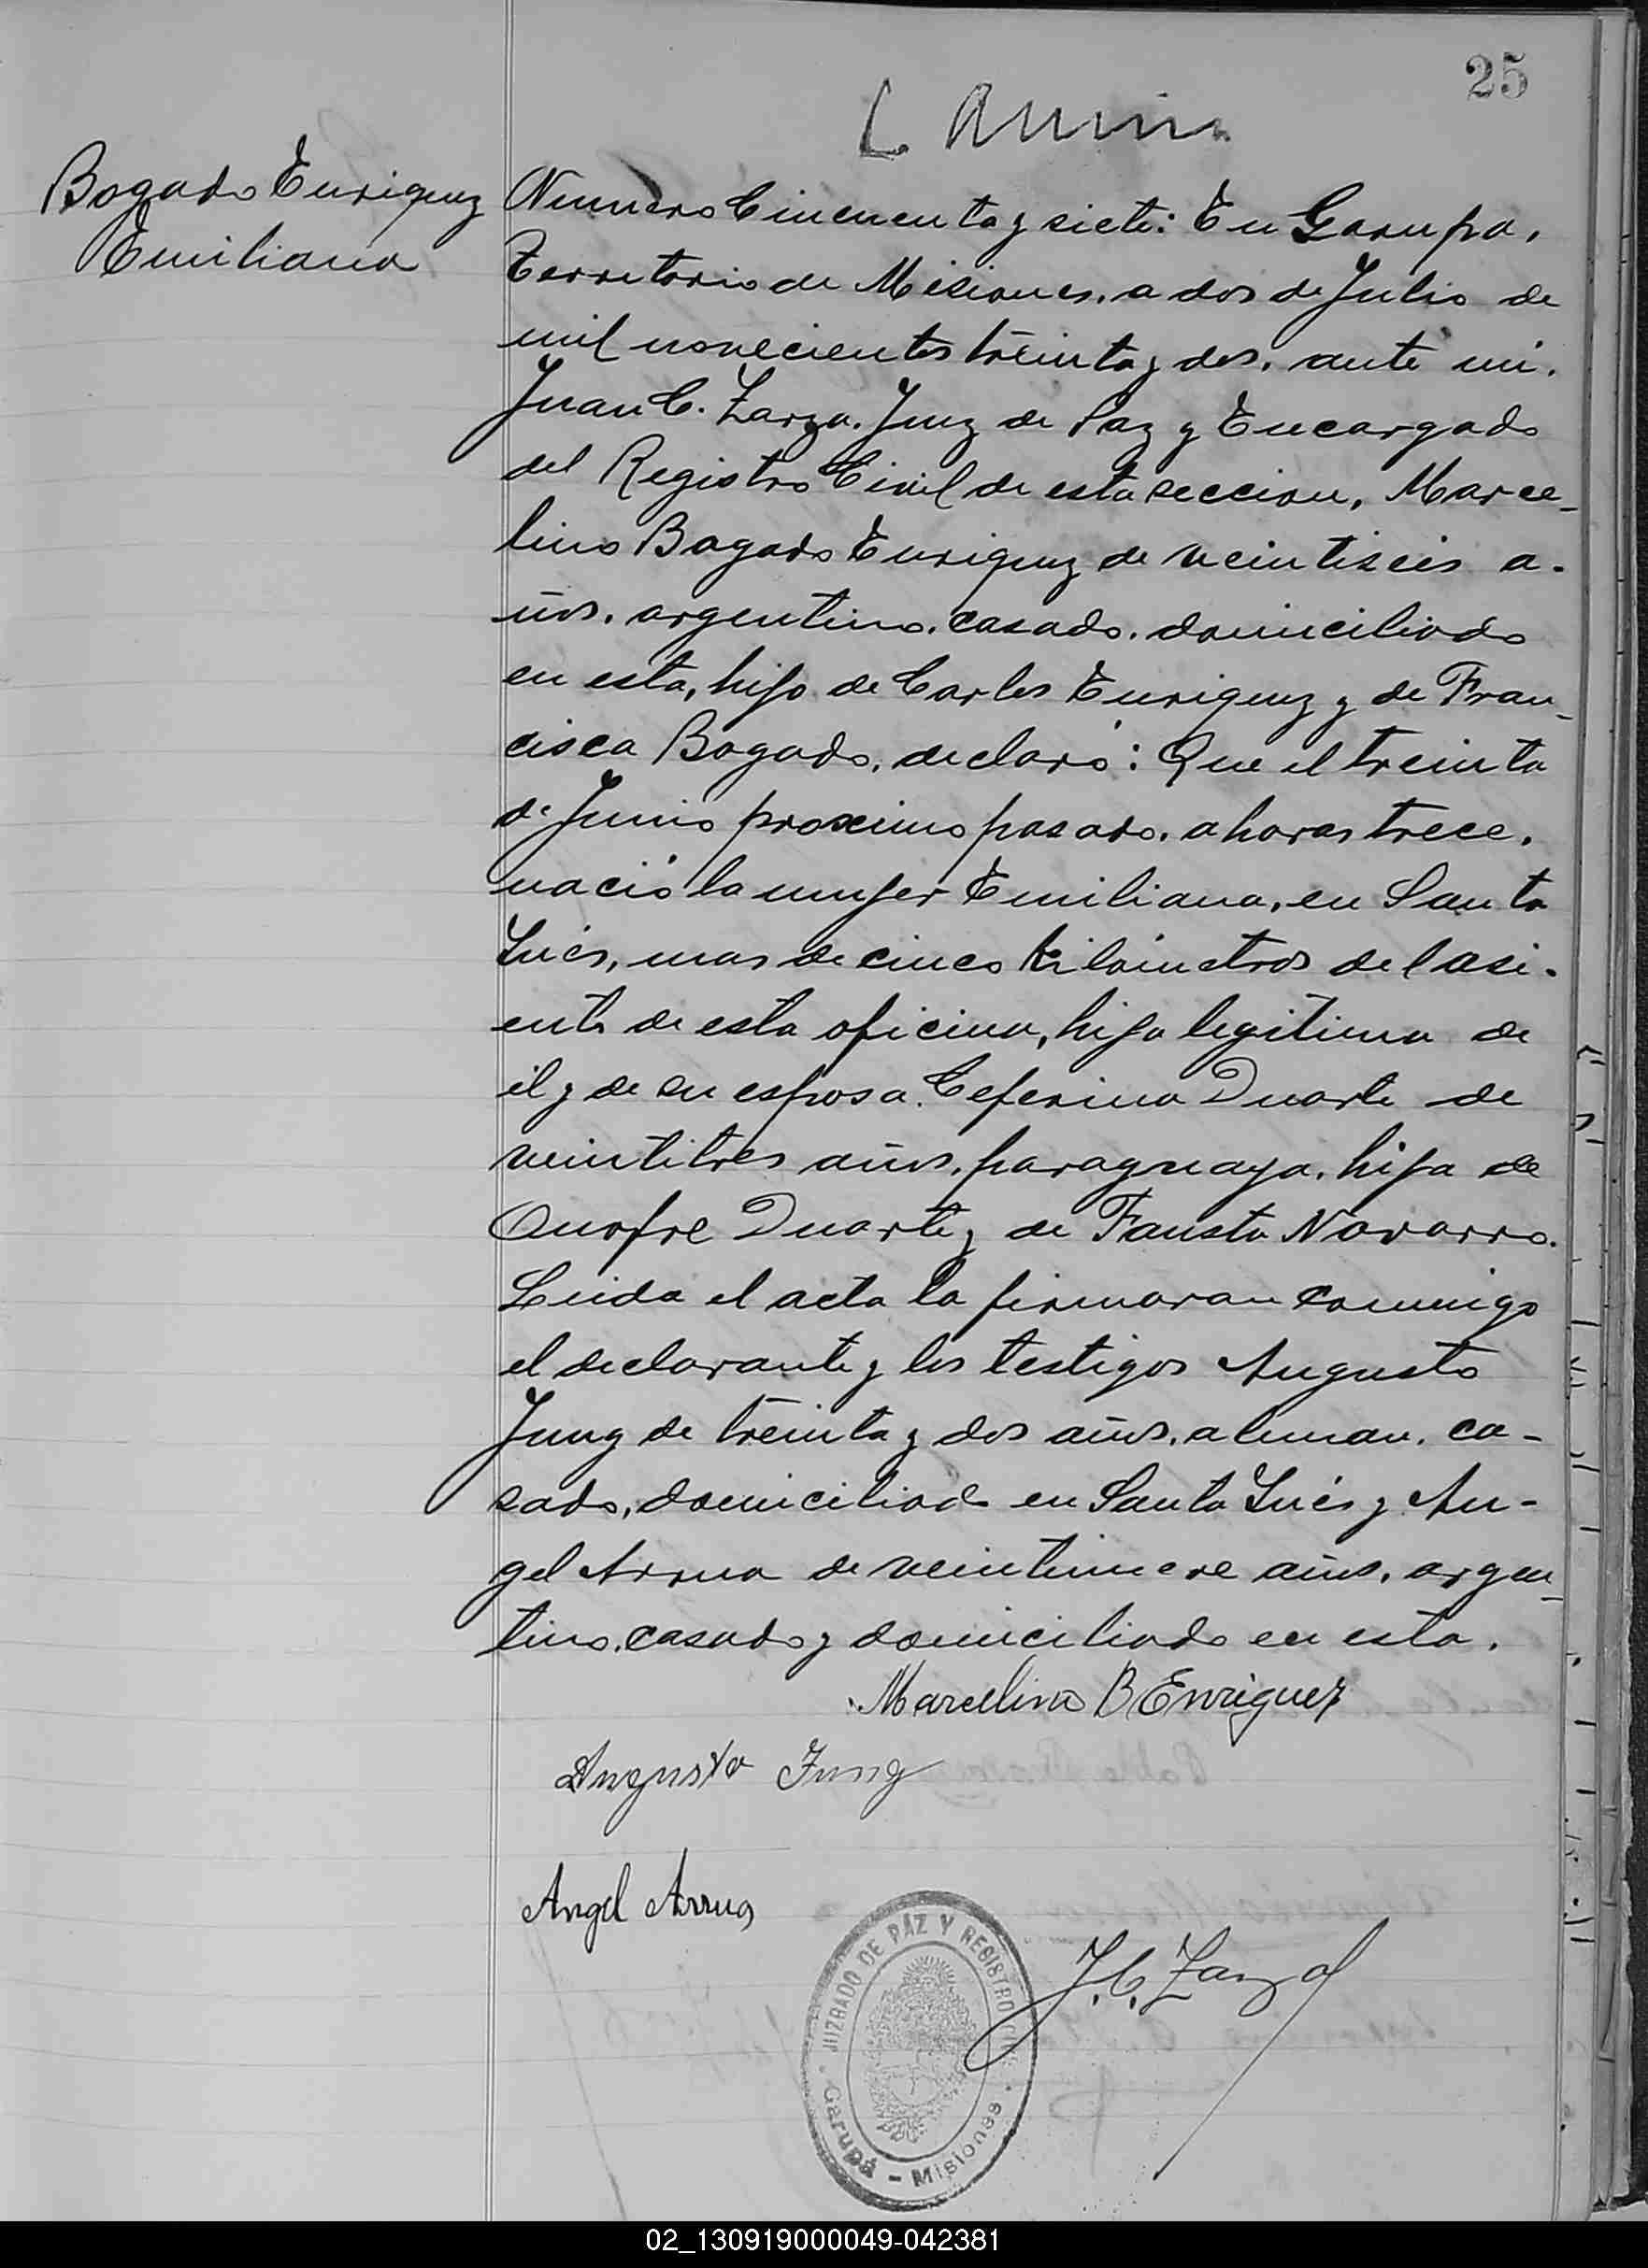 25
Bogado Enriquez
Emiliana
Numero Cincuenta y siete: En Garupa,
Territorio de Misiones, a dos de Julio de
mil novecientos treinta y dos, ante mi,
Juan C. Zarza, Juez de Paz y Encargado
del Registro Civil de esta seccion, Marce-
lino Bogado Enriquez de veintiseis a-
ños, argentino, casado, domiciliado
en esta, hijo de Carlos Enriquez y de Fran-
cisca Bogado, declaró: Que el treinta
de Junio proximo pasado, a horas trece,
nació la mujer Emiliana, en Santa
Inés, mas de cinco kilómetros del asi-
ento de esta oficina, hija legitima de
él y de su esposa Ceferina Duarte de
veintitres años, paraguaya, hija de
Onofre Duarte y de Fausta Navarro.
Leida el acta la firmaran conmigo
el declarante y los testigos Augusto
Jung de treinta y dos años, aleman, ca-
sado, domiciliado en Santa Inés y An-
gel Arrua de veintinueve años, argen-
tino, casado y domiciliado en esta.
Marcelino B Enriquez
Augusto Jung
Angel Arrua
J. C. Zarza
JUZGADO DE PAZ Y REGISTRO CIVIL
Garupá - Misiones
02_130919000049-042381